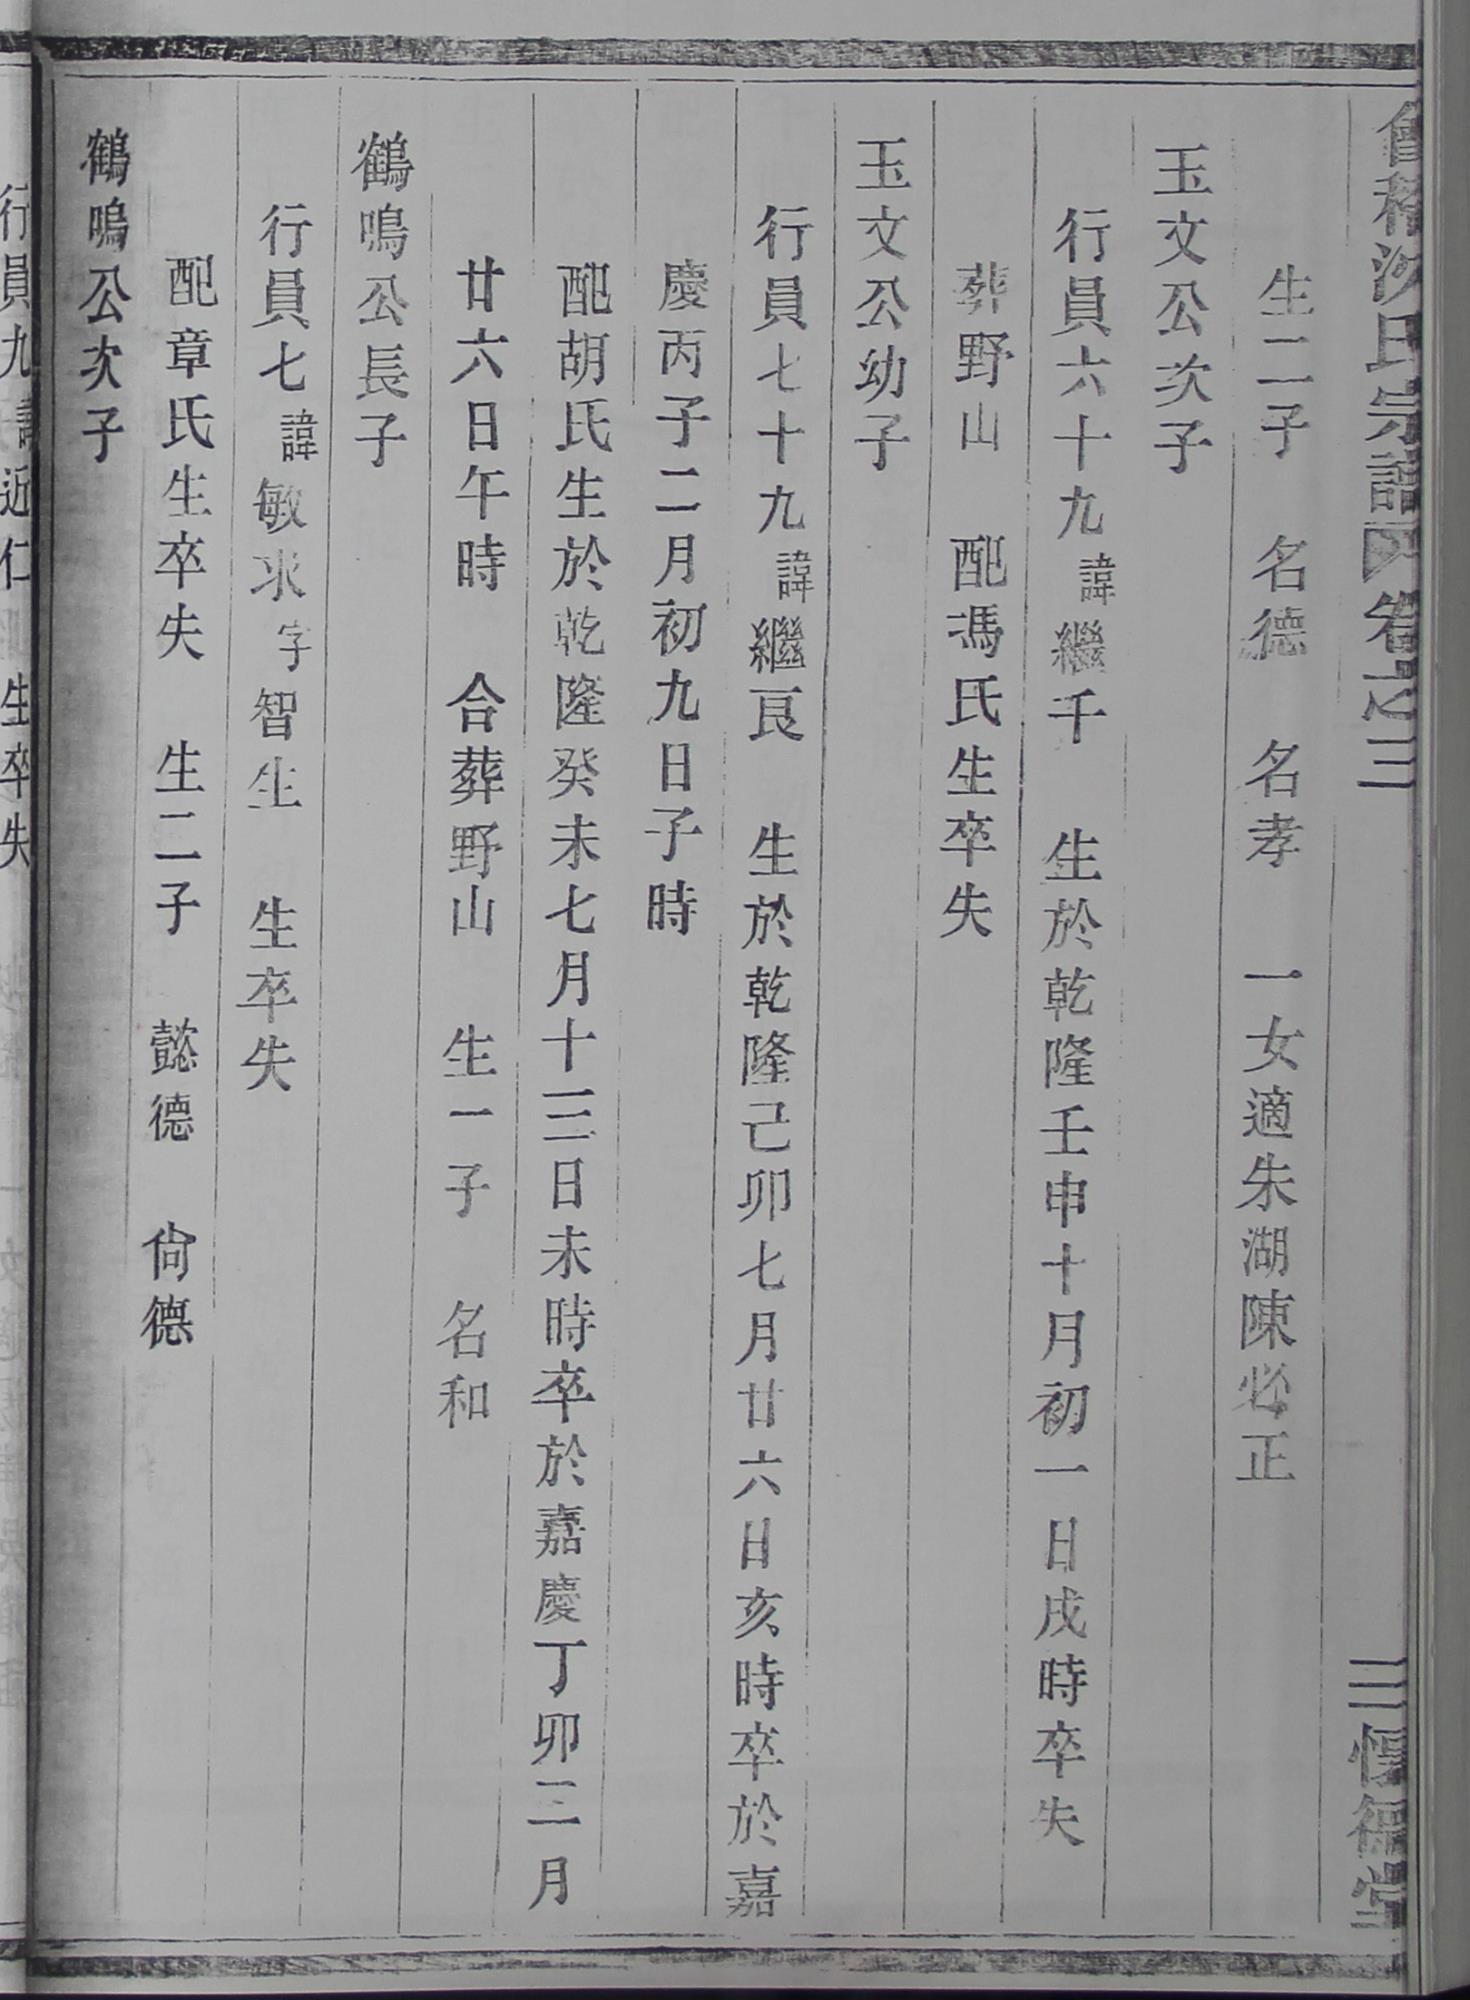 會稽沈氏宗譜 卷之三 三 懷德堂
生二子 名德 名孝 一女適朱湖陳必正
玉文公次子
行員六十九諱繼千 生於乾隆壬申十月初一日戌時卒失
葬野山 配馮氏生卒失
玉文公幼子
行員七十九諱繼良 生於乾隆己卯七月廿六日亥時卒於嘉
慶丙子二月初九日子時
配胡氏生於乾隆癸未七月十三日未時卒於嘉慶丁卯三月
廿六日午時 合葬野山 生一子 名和
鶴鳴公長子
行員七諱敏求字智生 生卒失
配章氏生卒失 生二子 懿德 尙德
鶴鳴公次子
行員九諱近仁 生卒失